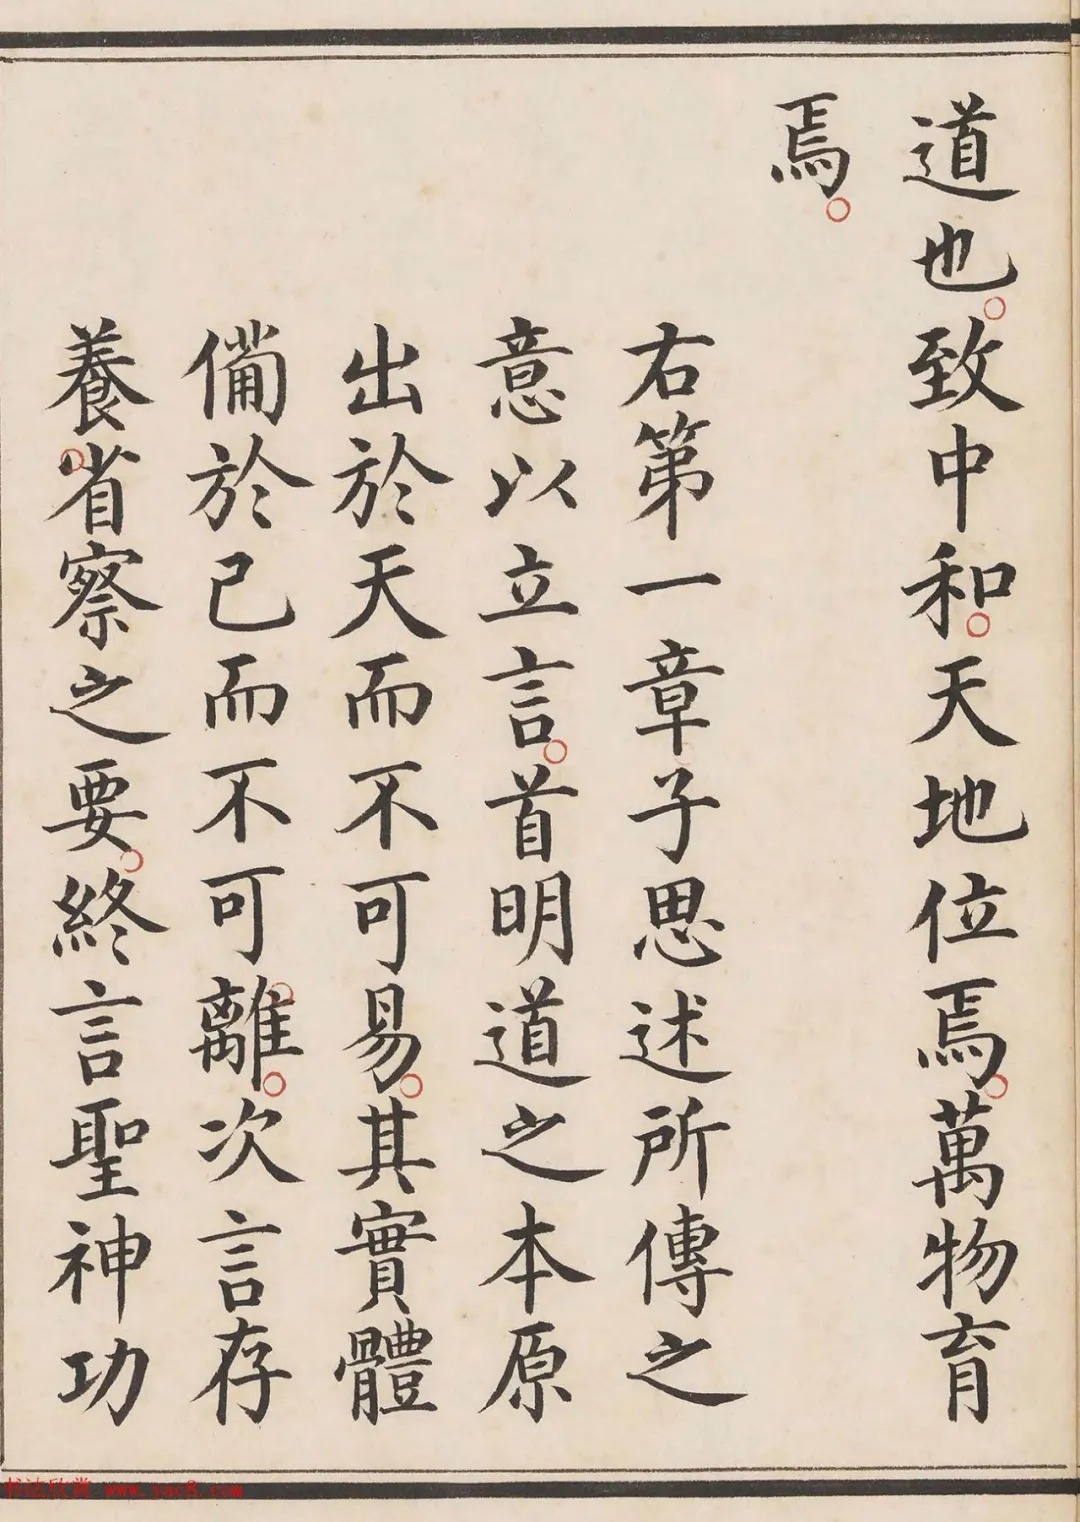 道也。致中和。天地位焉。萬物育
焉。
右第一章子思述所傳之
意以立言。首明道之本原
出於天而不可易。其實體
備於已而不可離。次言存
養。省察之要。終言聖神功
书法欣赏 www.yac8.com